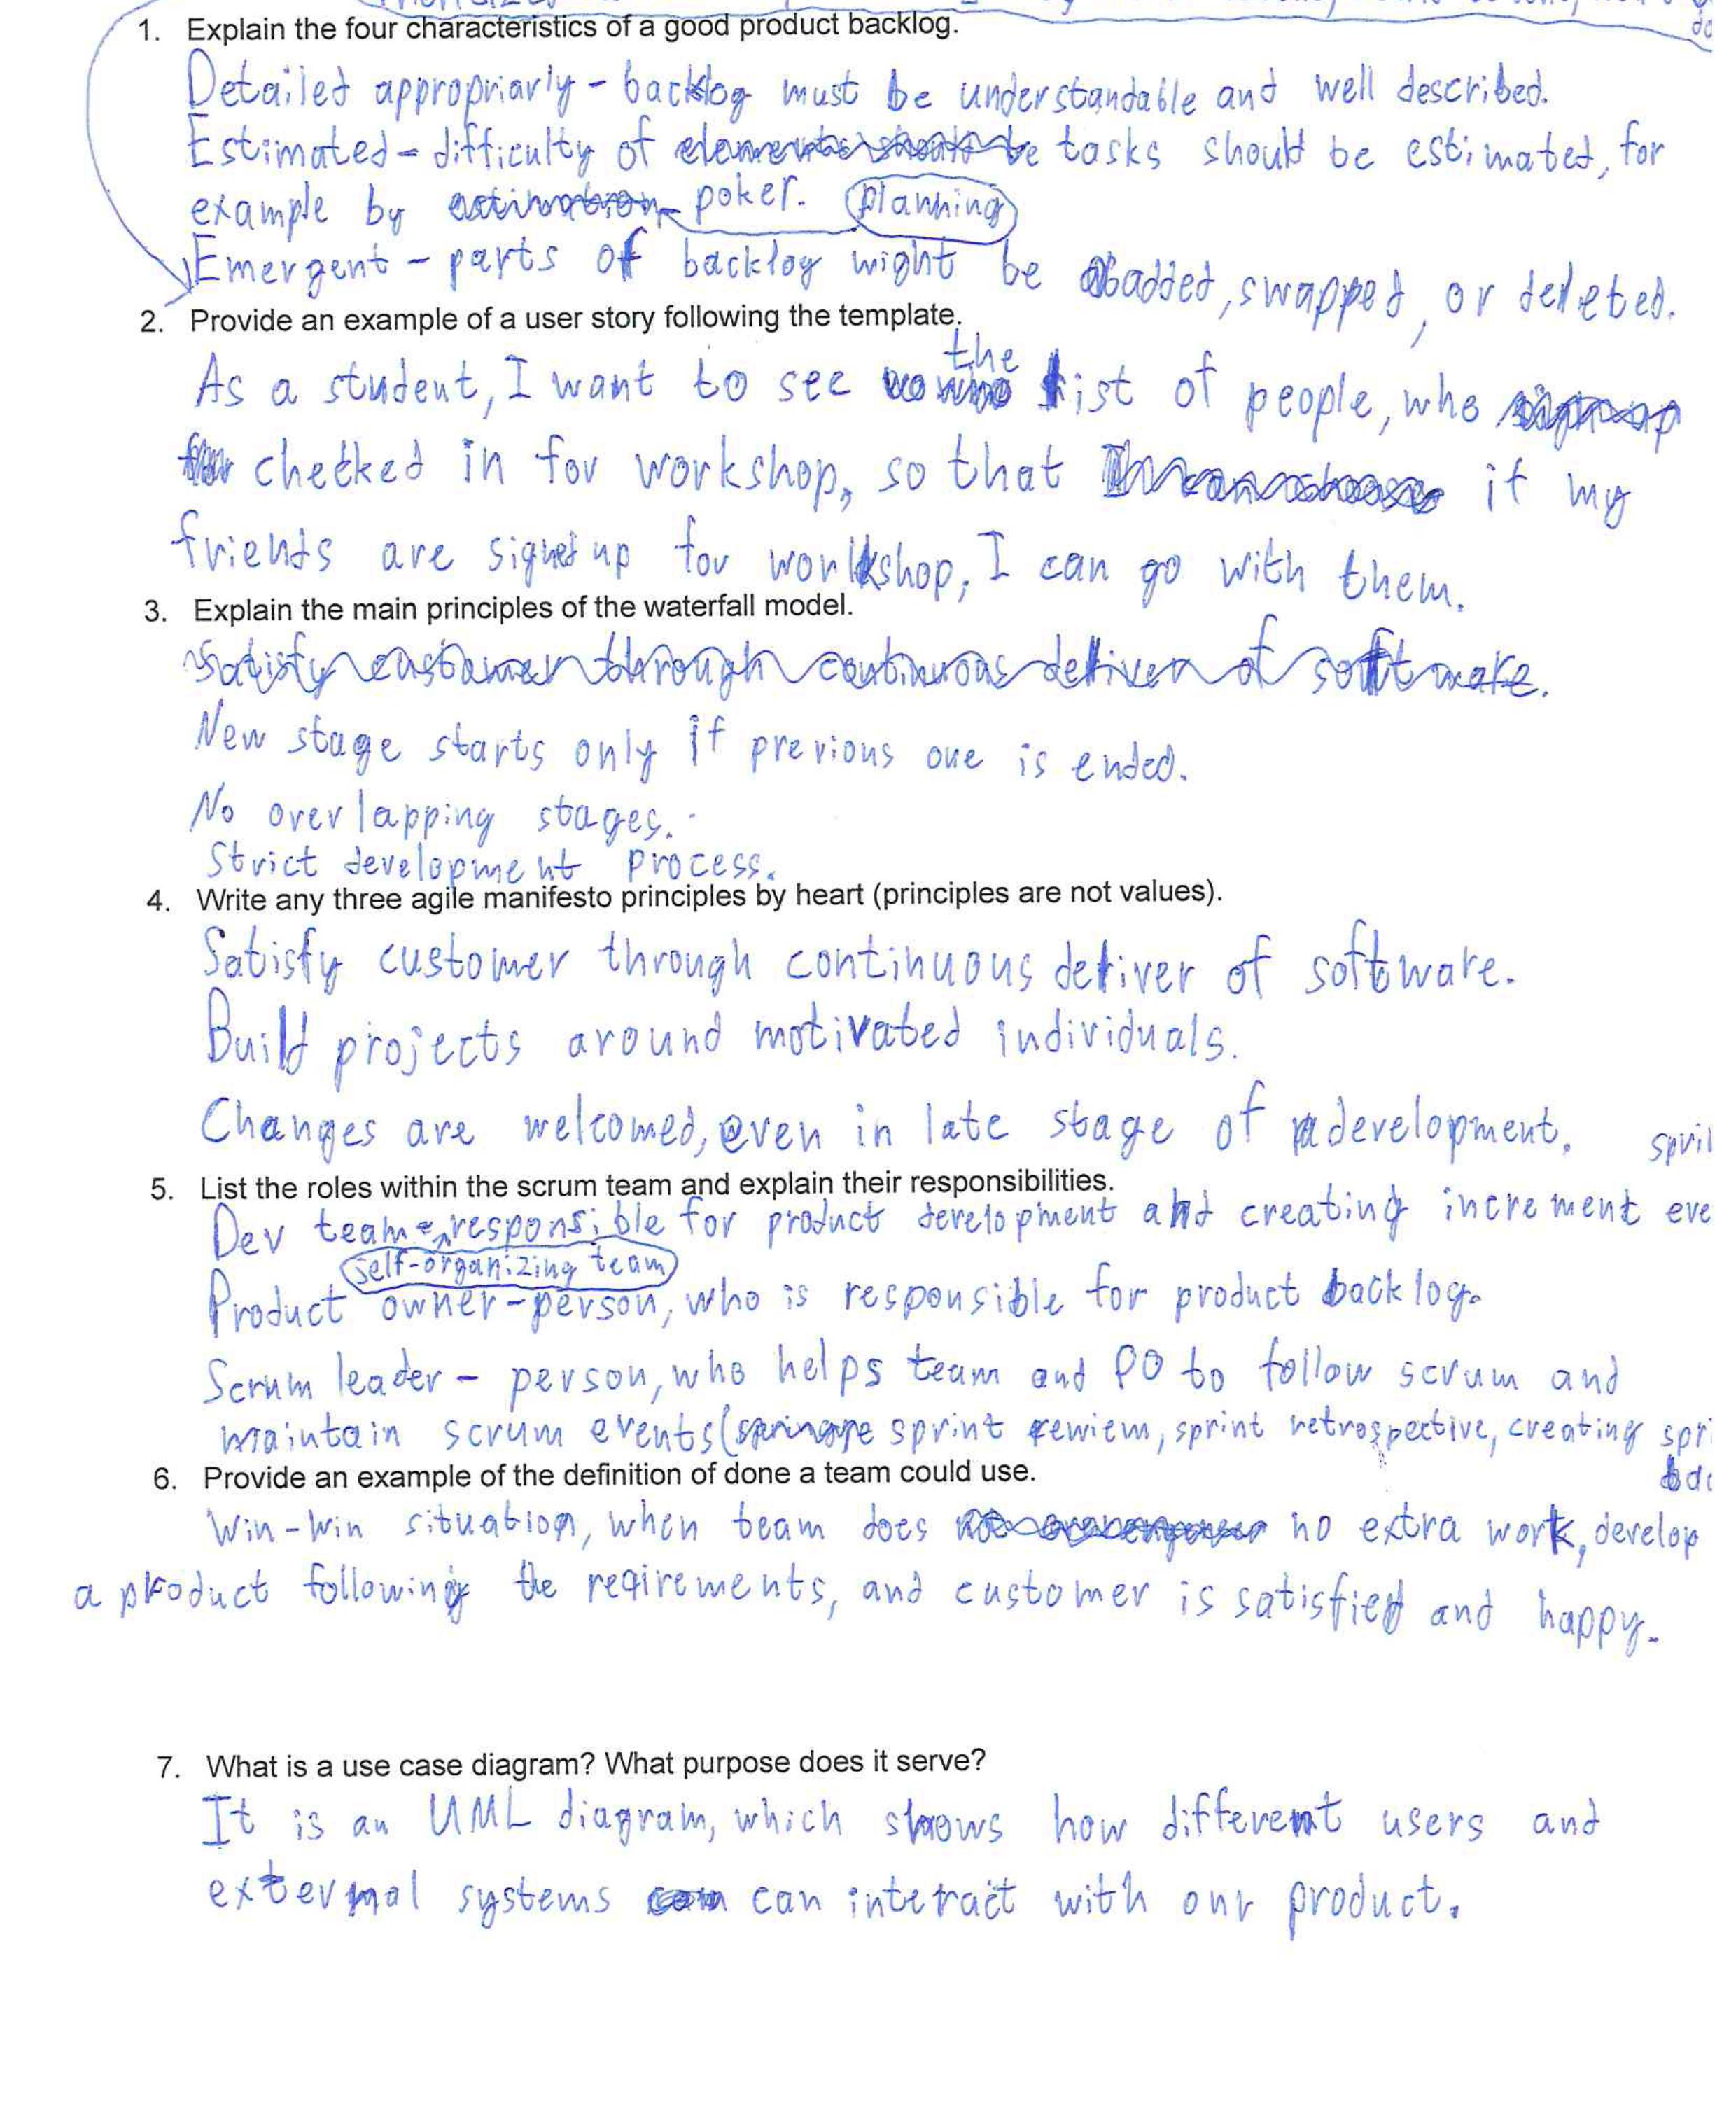 1. Explain the four characteristics of a good product backlog.
Detailed appropriarly - backlog must be understandable and well described.
Estimated - difficulty of tasks should be estimated, for
example by planning poker.
Emergent - parts of backlog might be added, swapped, or deleted.
2. Provide an example of a user story following the template.
As a student, I want to see the list of people, who
checked in for workshop, so that if my
friends are signed up for workshop, I can go with them.
3. Explain the main principles of the waterfall model.
Satisfy customer through continuous deliver of software.
New stage starts only if previous one is ended.
No overlapping stages.
Strict development process.
4. Write any three agile manifesto principles by heart (principles are not values).
Satisfy customer through continuous deliver of software.
Build projects around motivated individuals.
Changes are welcomed, even in late stage of development.
5. List the roles within the scrum team and explain their responsibilities.
Dev team - responsible for product development and creating increment eve
self-organizing team
Product owner - person, who is responsible for product backlog.
Scrum leader - person, who helps team and PO to follow scrum and
maintain scrum events (sprint rewiem, sprint retrospective, creating spri
6. Provide an example of the definition of done a team could use.
Win-win situation, when team does no extra work, develop
a product following the reqirements, and customer is satisfied and happy.
7. What is a use case diagram? What purpose does it serve?
It is an UML diagram, which shows how different users and
external systems can interact with our product.